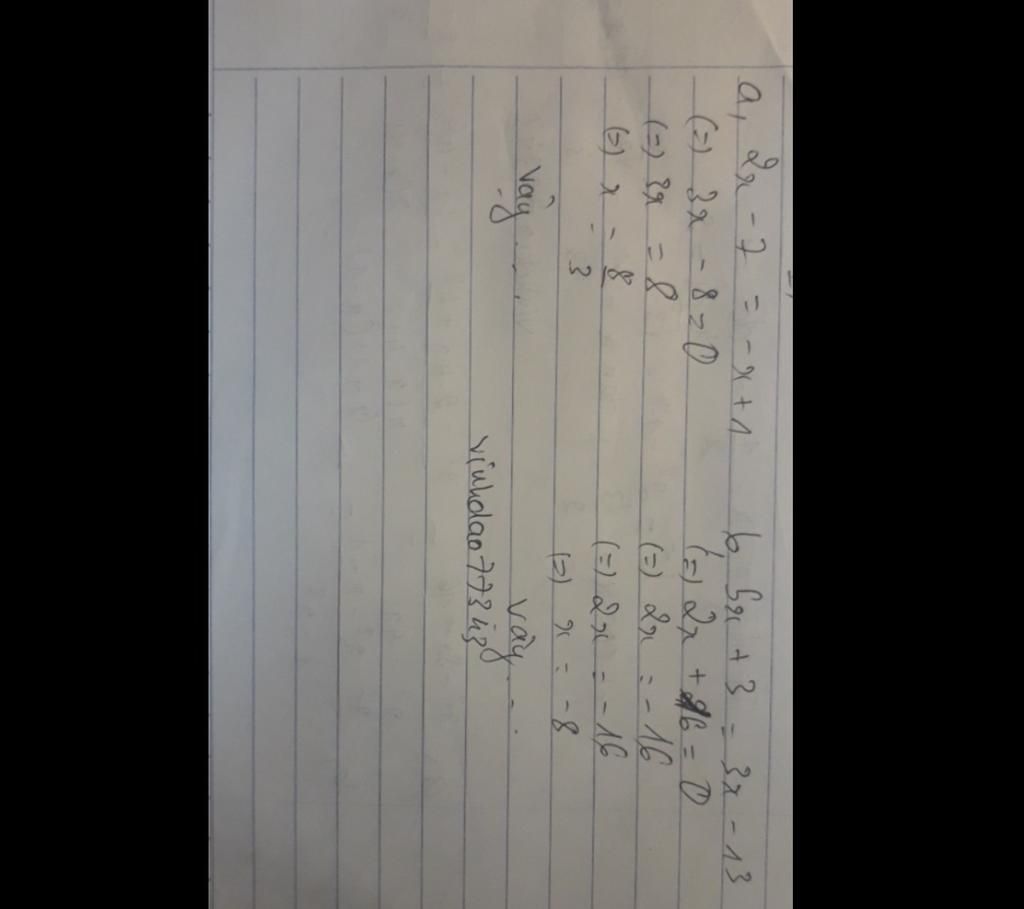 a, 2x - 7 = - x + 1
(=) 3x - 8 = 0
(=) 3x = 8
(=) x = 8/3
Vậy...
b, 5x + 3 = 3x - 13
(=) 2x + 16 = 0
(=) 2x = - 16
(=) 2x = - 16
(=) x = - 8
Vậy...
vinhdao77343